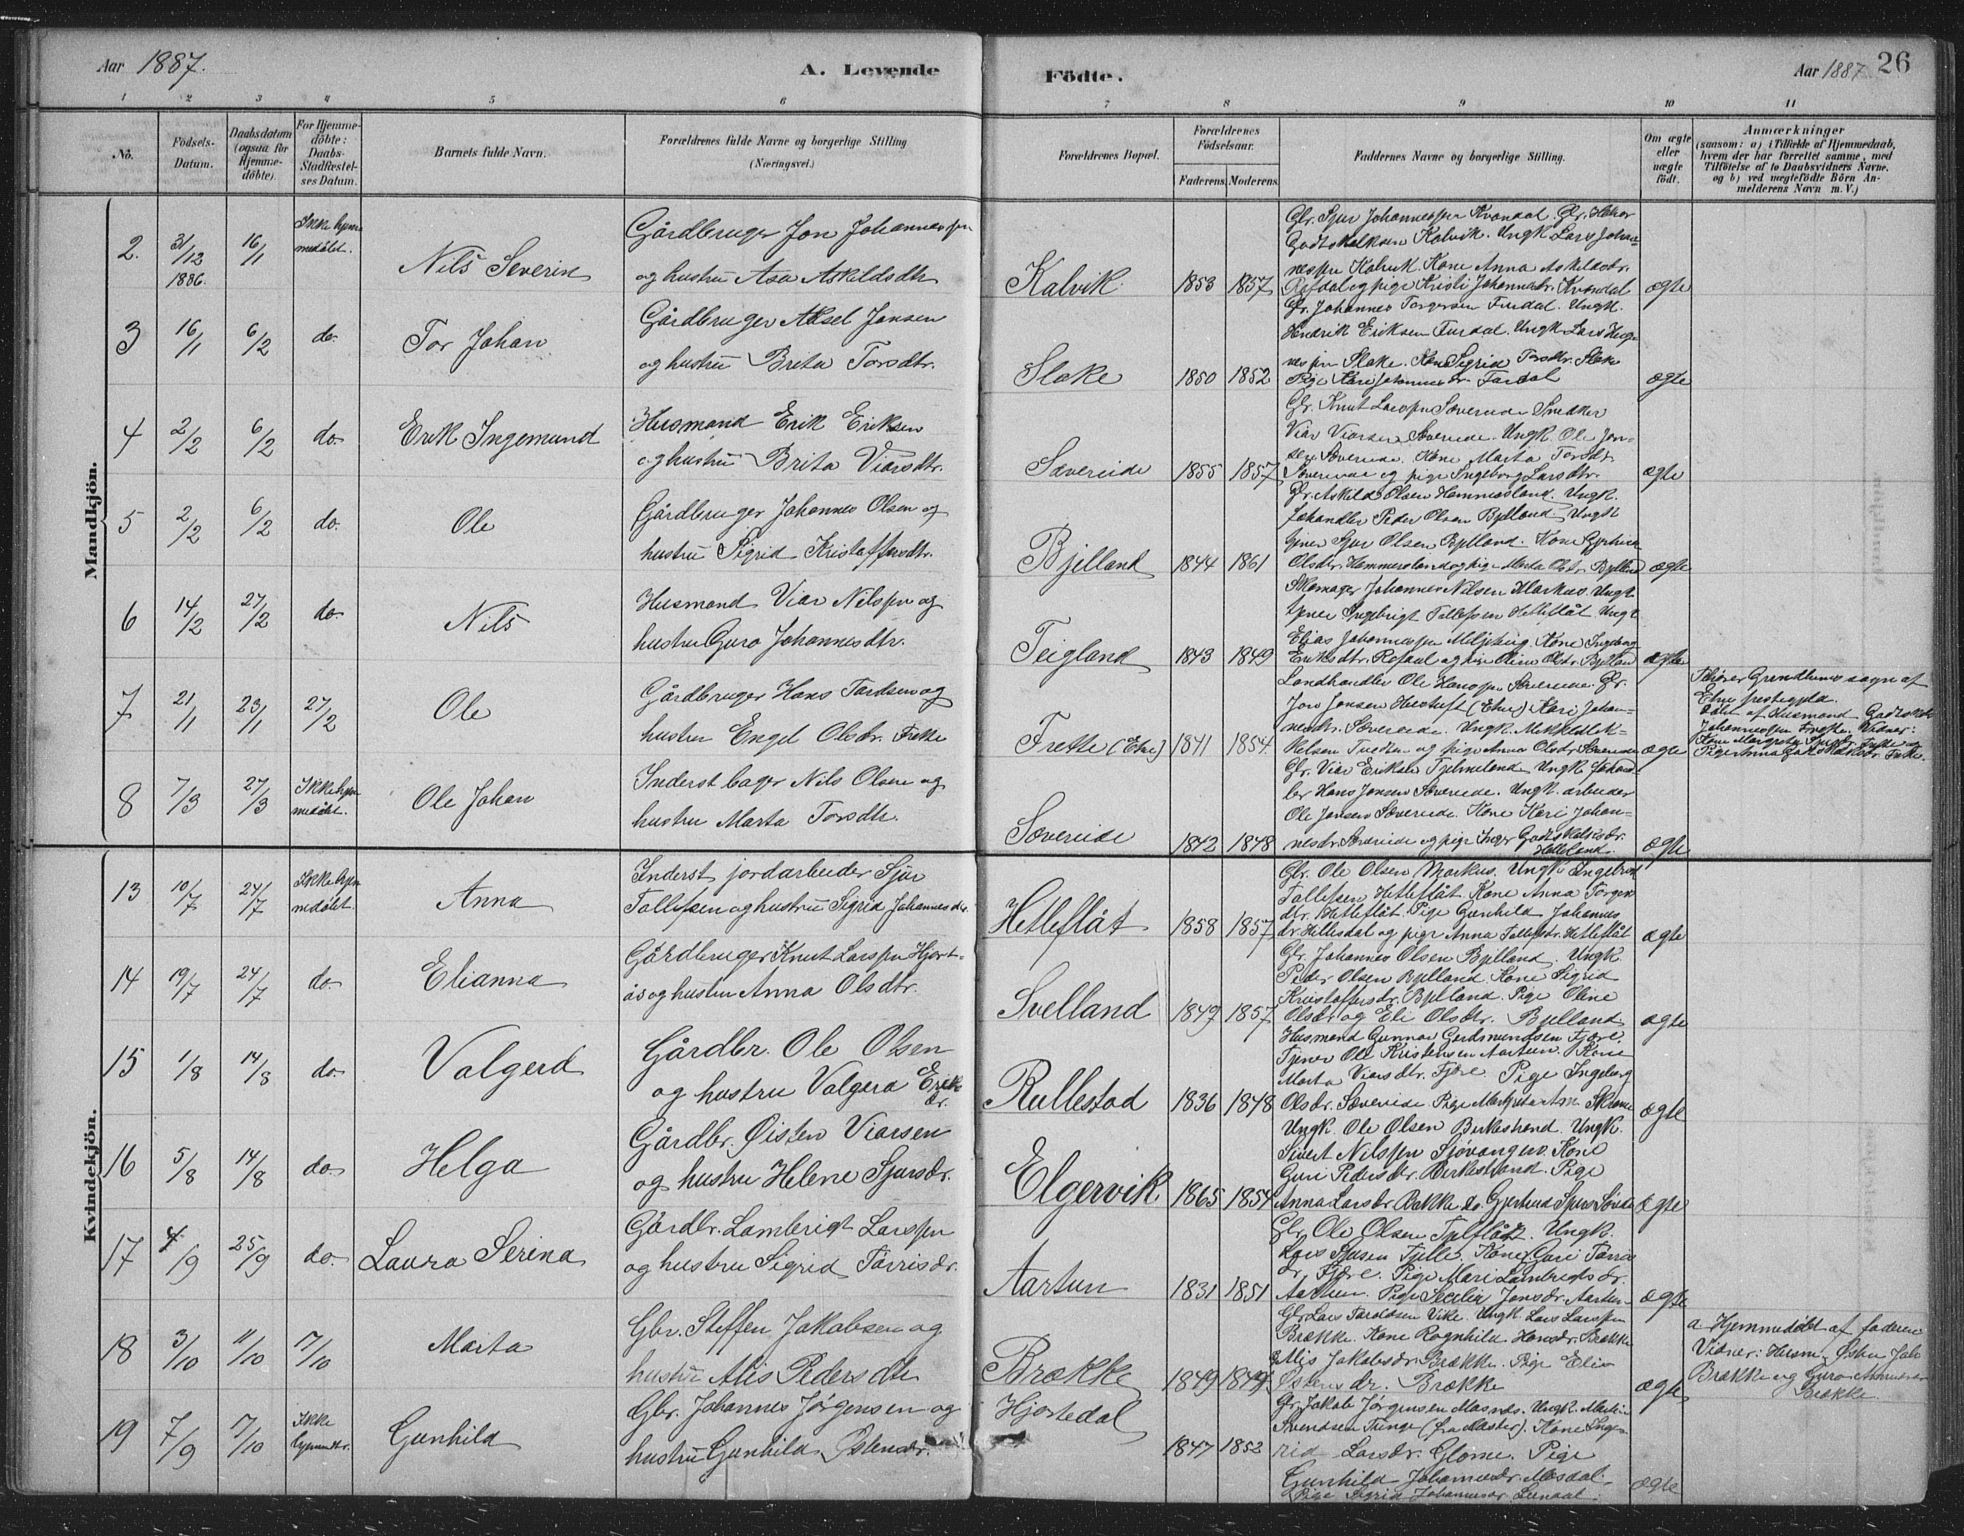 Aar 1887.
A. Levende Födte.
Aar 1887
26
1 2 3 4 5 6 7 8 9 10 11
No.
Födsels-Datum.
Daabsdatum (ogsaa for Hjemmedöbte).
For Hjemmedöbte: Daabs-Stadfæstelses Datum.
Barnets fulde Navn.
Forældrenes fulde Navne og borgerlige Stilling (Næringsvei.)
Forældrenes Bopæl.
Forældrenes Födselsaar.
Faderens. Moderens.
Faddernes Navne og borgerlige Stilling.
Om ægte eller uægte födt.
Anmærkninger
(saasom: a) i Tilfælde af Hjemmedaab, hvem der har forrettet samme, med Tilföielse af to Daabsvidners Navne, og b) ved uægtefödte Börn Anmelderens Navn m. V.)
Mandkjön.
2. 31/12 1886. 16/1 Ikke hjemmedöbt. Nils Severin
Gårdbruger Jon Johannesen
og hustru Asa Askildsdtr.
Kalvik 1853 1857
Gbr. Sjur Johannessen Kvandal. Gbr.
Godtskalksen Kalvik. Ungk. Lars Johannessen Kalvik. Kone Anna Askildsdr.
og pige Kristi Johannesdr. Kvandal
ægte
3 16/1 6/2 do. Tor Johan
Gårdbruger Aksel Jonsen
og hustru Brita Torsdtr.
Slake 1850 1852
Gbr. Johannes Torgersen Furdal. Ungk.
Hendrik Eriksen Furdal. Ungk. Lars
Slake. Kone Sigrid Torsdtr. Slake
Pige Kari Johannesdr.
ægte
4 2/2 6/2 do Erik Ingemund
Husmand Erik Eriksen
og hustru Brita Viarsdtr.
Sævereide 1855 1857
Gbr. Knut Larssen Sævereide Snedker
Viar Viarsen Sævereide. Ungk. Ole Jonsen Sævereide. Kone Marta Torsdtr.
Sævereide og pige Ingeborg Larsdtr.
ægte
5 2/2 6/2 do. Ole
Gårdbruger Johannes Olsen og
hustru Sigrid Kristoffersdtr.
Bjelland 1844 1861
Gbr. Askild Olsen Hammersland. Ungk.
Peder Olsen Bjelland. Ungk
Sjur Olsen Bjelland. Kone
Olsdtr. Hammersland og pige Marta Olsdtr. Bjelland
ægte
6 14/2 27/2 do. Nils
Husmand Viar Nilssen og
hustru Guro Johannesdtr.
Teigland 1843 1849
Skomager Johannes Nilsen Markus. Ungk
tjener Ingebrigt Tollefsen Hetleflåt. Ungk
Elias Johannessen. Kone Ingeborg
Eriksdtr. og pige Oline Olsdtr. Bjelland
ægte
7 21/1 23/1 27/2 Ole
Gårdbruger Hans Tordsen og
hustru Engel Olsdr. Frette
Frette (Etne) 1841 1854.
Landhandler Ole Hanssen Sævereide. Gbr.
Jon Jonsen (Etne) Kari Johannesdr. Sævereide. Ungk.
og pige Anna Olsdr. Sævereide
ægte
Grindheims sogn af
Etne prestegjeld
Döbt af Husmand
Johannessen Frette. Vidner:
Kone
Pige Anna
8 7/3 27/3 Ikke hjemmedöbt. Ole Johan
Inderst bager Nils Olsen og
hustru Marta Torsdtr.
Sævereide 1842 1848
Gbr. Viar Eriksen Tjelmeland Ungk.
Hans Jonsen Sævereide. Ungk. arbeider
Ole Jonsen Sævereide. Kone Kari Johannesdr. Sævereide og pige Inger Godtskalksdr.
Helleland.
ægte
Kvindekjön.
13 10/7 24/7 Ikke hjemmedöbt. Anna
Inderst jordarbeider Sjur
Tollefsen og hustru Sigrid Johannesdr.
Hetleflåt 1858 1857
Gbr. Ole Olsen Markus. Ungk. Ingebrigt
Tollefsen Hetleflåt. Kone Anna
Hetleflåt. Pige Gunhild Johannesdr. Hillesdal og pige Anna Tollefsdr. Hetleflåt
ægte
14 19/7 24/7 do. Elianna
Gårdbruger Knut Larssen Hjortås og hustru Anna Olsdtr.
Svelland 1849 1857
Gbr. Johannes Olsen Bjelland. Ungk.
Peder Olsen Bjelland. Kone Sigrid
Kristoffersdr. Bjelland. Pige Oline
Olsdr og Eli Olsdtr. Bjelland
ægte
15 1/8 14/8 do. Valgerd
Gårdbr. Ole Olsen
og hustru Valgerd Eriksdr.
Rullestad 1836 1848
Husmand Gunnar Gerhsmundsen Fjære.
Tjener Ole Kristensen Aartun. Kone
Marta Viarsdtr. Fjære Pige Ingeborg
Olsdr. Sævereide Pige Margreta Am. Skromme
ægte
16 5/8 14/8 do. Helga
Gårdbr. Øisten Viarsen
og hustru Helene Sjursdr.
Elgervik 1865 1854
Ungk. Ole Olsen Birkestrand. Ungk.
Sivert Nilssen Sjövangen. Kone
Guri Pedersdr. Birkestrand. Pige
Anna Larsdr Bakke do Gjertrud
ægte
17 4/9 25/9 do. Laura Serina
Gårdbr. Lambrigt Larssen
og hustru Sigrid Torrisdr.
Aartun 1831 1851
Gbr. Ole Olsen Tjelflåt. Ungk.
Tjelle. Kone Guri
Fjære. Pige Mari Lambregtsdr.
Aartun. Pige Secilia Jonsdr. Aartun
ægte
18 3/10 11/10 17/10 Marta
Gbr. Steffen Jakobsen og
hustru Alis Pedersdtr
Brække 1849 1849
Gbr. Lars Tordsen Vike. Ungk. Lars Larssen
Brække. Kone Ragnhild Hansdr. Brække
Alis Jakobsdr. Brække. Pige Elis
Østensdr. Brække
ægte
a Hjemmedöbt af faderen
Vidner: Husm. Østen
Brække og Guro
Brække.
19 7/9 17/10 Ikke hjemmdr. Gunhild
Gbr. Johannes Jørgensen og
hustru Gunhild Østensdr.
Hjortedal 1847 1852
Gbr. Jakob Jørgensen Masnes. Ungk.
Svendsen Tvinge (fra Røldal). Kone Ingerid Larsdr. Glome. Pige
Gunhild Johannesdr. Mosdal.
Pige Sigrid Johannesdr
ægte